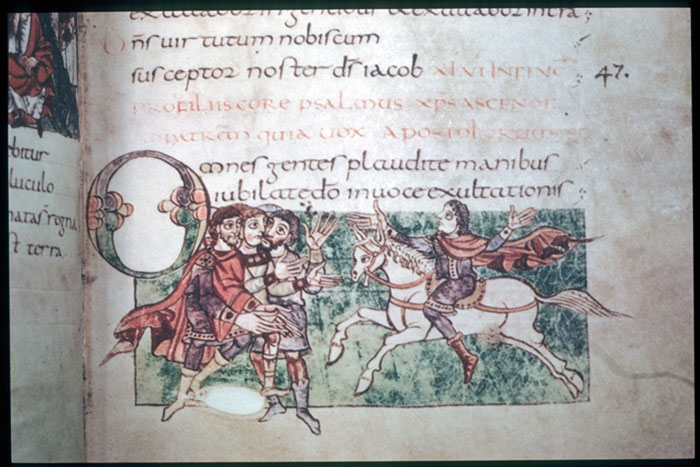 exaltabor in gentibus & exaltabor in terra
dn̄s uirtutum nobiscum
susceptor noster d̄s iacob XLVI IN FINĒ
PRO FILIIS CORE PSALMUS XP̄S ASCENDIT
PATREM QUIA VOX APOSTOLORUM
47.
Omnes gentes plaudite manibus
iubilate dō in uoce exultationis
ebitur
luculo
natas regna
st terra